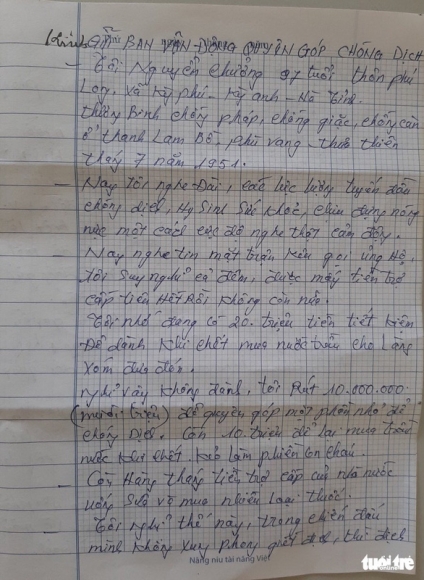 Kính gửi BAN VẬN ĐỘNG QUYÊN GÓP CHỐNG DỊCH
- Tôi Nguyễn Chưởng 97 tuổi thôn phú
Long, xã Kỳ phú - Kỳ anh - Hà Tĩnh.
thương Binh chống pháp, chống giặc, chống càn
ở thanh Lam Bồ, phú vang, thừa thiên
tháng 7 năm 1951.
- Nay tôi nghe Đài, các lực lượng tuyến đầu
chống dịch, Hy Sinh Sức khoẻ, chịu đựng nóng
nực một cách cực độ nghe thật cảm động.
- Nay nghe tin mặt trận kêu gọi ủng Hộ,
tôi Suy nghĩ cả đêm, được mấy tiền trợ
cấp tiêu Hết Rồi không còn nữa.
Tôi nhớ đang có 20 triệu tiền tiết kiệm
Để dành khi chết mua nước trầu cho Làng
xóm đưa đón.
nghĩ vậy không đành, tôi Rút 10.000.000
(mười triệu) để quyên góp một phần nhỏ để
chống Dịch. Còn 10 triệu để lại mua trầu
nước khi chết. khỏi làm phiền con cháu.
- Còn Hàng tháng tiền trợ cấp của nhà nước
uống Sữa và mua nhiều loại thuốc.
- Tôi nghĩ thế này, trong chiến đấu
mình không xung phong giết địch, thì địch
Nâng niu tài năng Việt
tuổi trẻ